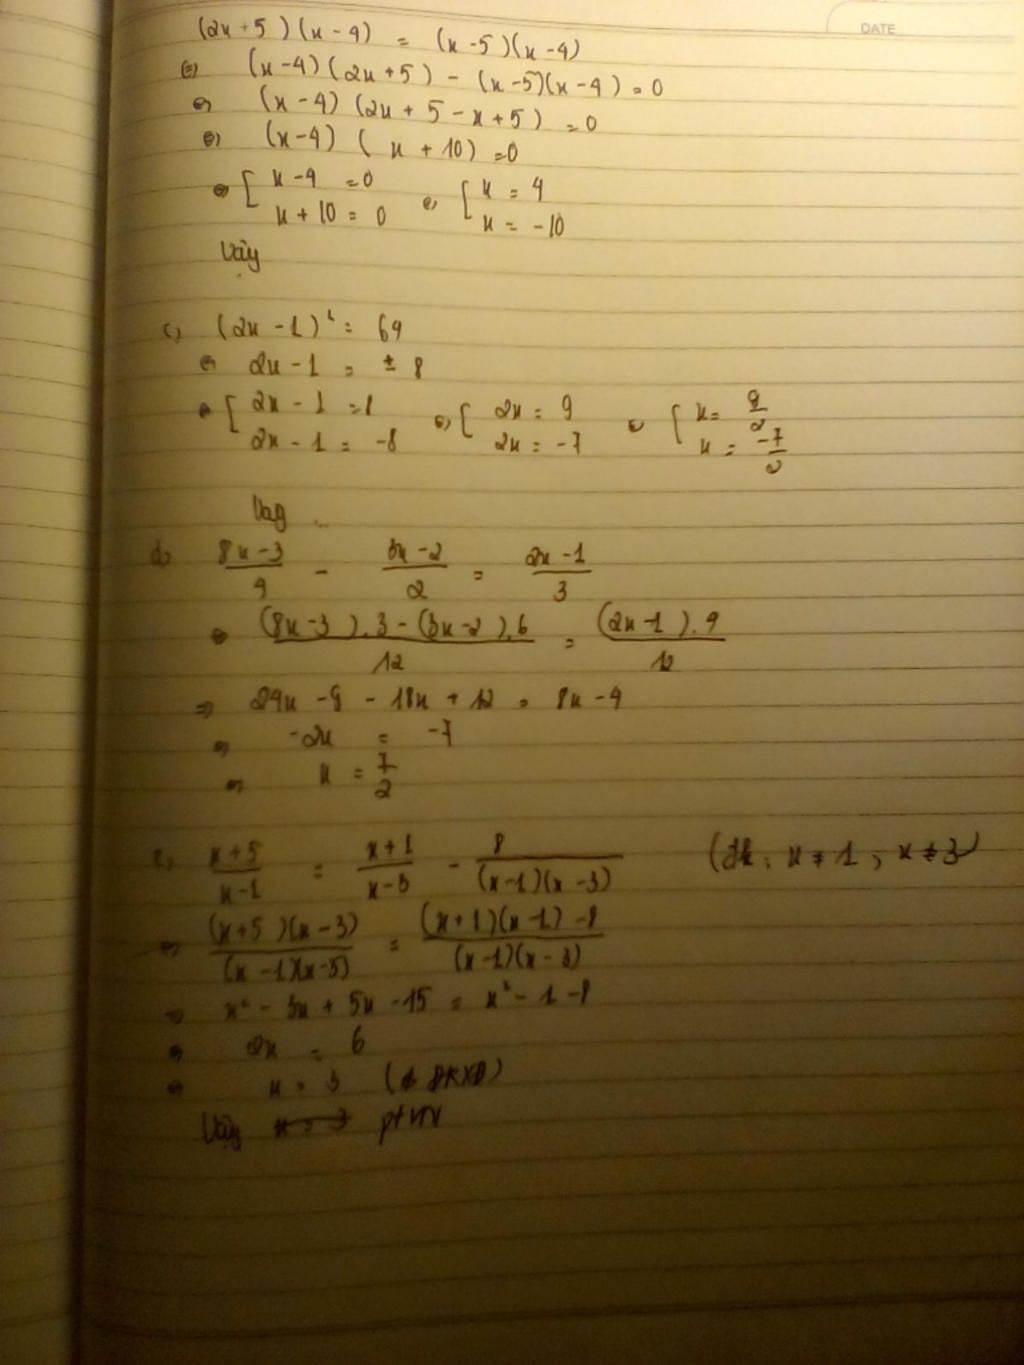 DATE
(2x+5)(x-4) = (x-5)(x-4)
⇔ (x-4)(2x+5) - (x-5)(x-4) = 0
⇔ (x-4)(2x+5-x+5) = 0
⇔ (x-4)(x+10) = 0
⇔ [ x-4 = 0 ⇔ [ x = 4
x+10 = 0 x = -10
Vậy
c) (2x-1)² = 64
⇔ 2x-1 = ± 8
⇔ [ 2x-1 = 8 ⇔ [ 2x = 9 ⇔ [ x = 9/2
2x-1 = -8 2x = -7 x = -7/2
Vậy
d) (8x-3)/4 - (3x-2)/2 = (2x-1)/3
⇔ ((8x-3).3-(3x-2).6)/12 = ((2x-1).4)/12
⇒ 24x-9-18x+12 = 8x-4
⇔ -2x = -7
⇔ x = 7/2
e) (x+5)/(x-1) = (x+1)/(x-3) - 8/((x-1)(x-3)) (đk: x≠1; x≠3)
⇔ ((x+5)(x-3))/((x-1)(x-3)) = ((x+1)(x-1)-8)/((x-1)(x-3))
⇒ x²-3x+5x-15 = x²-1-8
⇔ 2x = 6
⇔ x = 3 ( ĐKXĐ)
Vậy ptvn